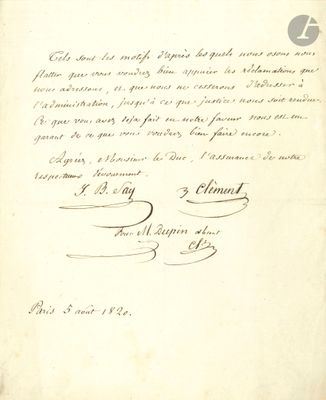 Tels sont les motifs d'après lesquels nous osons nous
flatter que vous voudrez bien appuier les réclamations que
nous adressons, et que nous ne cesserons d'adresser à
l'administration, jusqu'à ce que justice nous soit rendue.
Ce que vous avez déjà fait en notre faveur nous est un
garant de ce que vous voudrez bien faire encore.
Agréez, Monsieur le Duc, l'assurance de notre
respectueux dévouement.
J. B. Say Clément
Pour M. Dupin absent
Paris 5 août 1820.